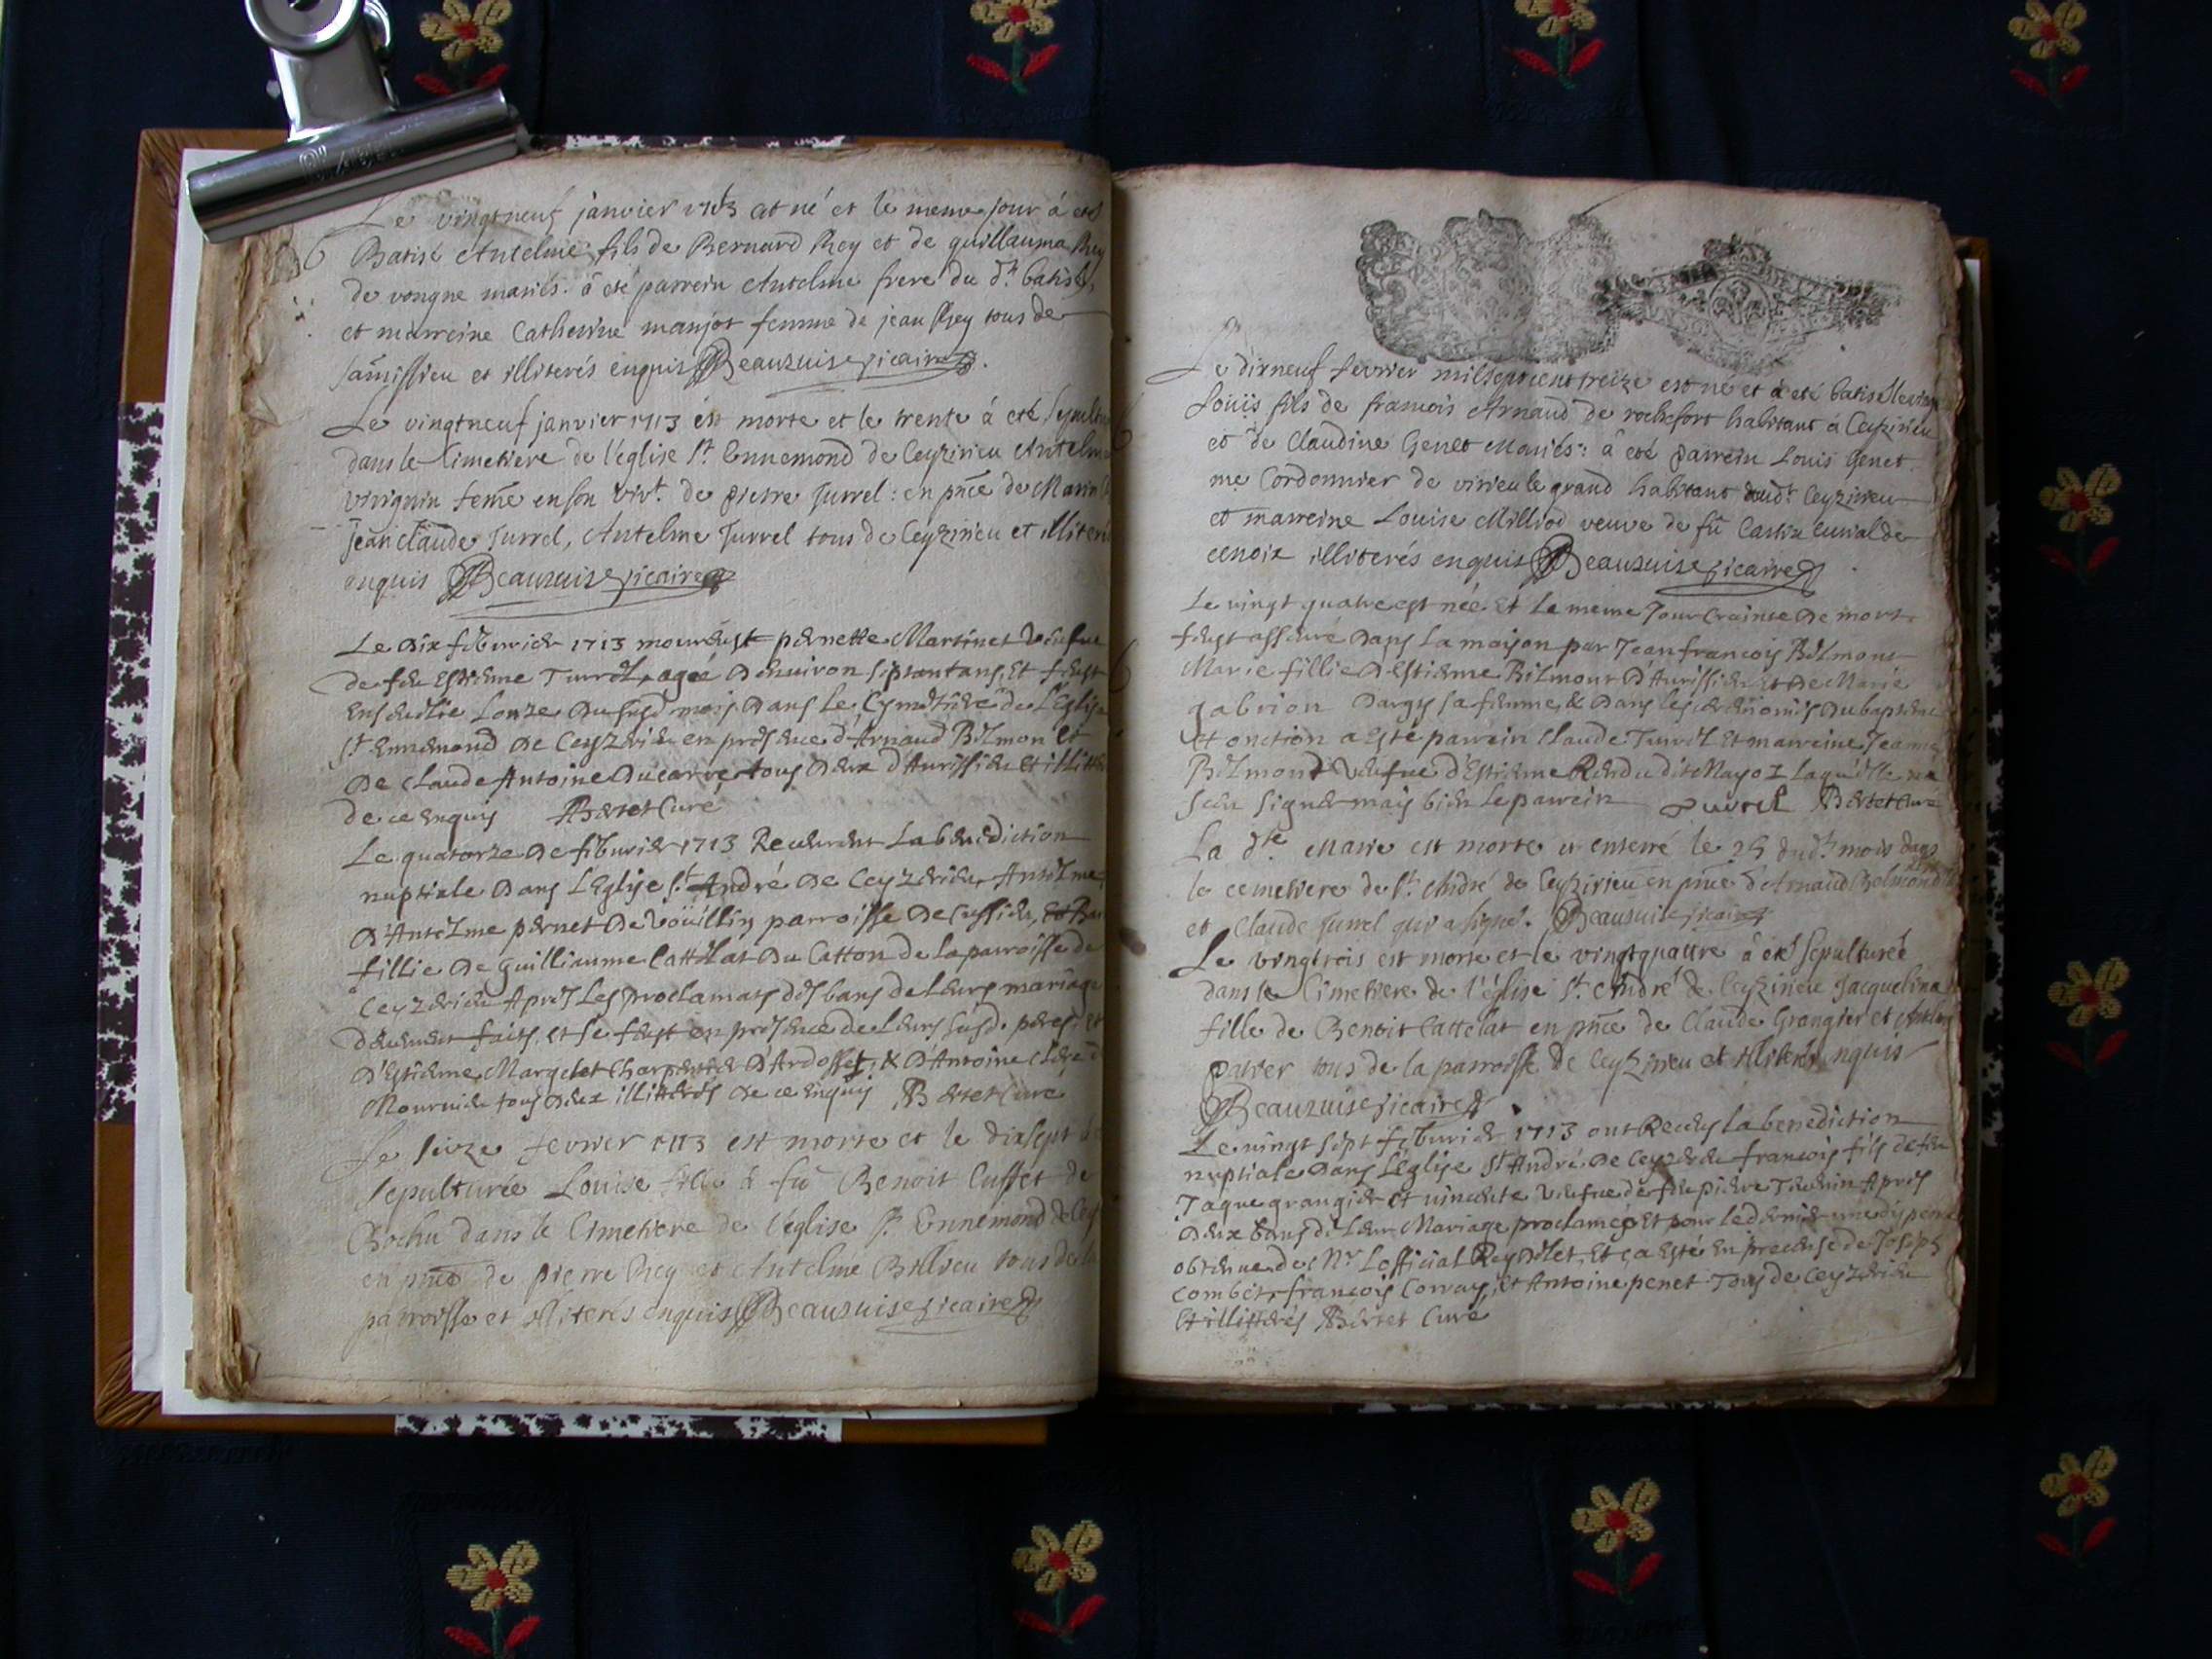 Le vingtneuf janvier 1713 at né et le meme jour à eté
Batisé Antelme fils de Bernard Rey et de guillauma Rey
de vongne mariés. à eté parrein Antelme frere du dt. batisé,
et marreine Catherine manjot femme de jean Rey tous de
samissieu et illiterés enquis Beauzuise vicaire.
Le vingtneuf janvier 1713 est morte et le trente à eté sepultu
dans le Cimetiere de l'église St. Ennemond de Ceyzirieu Antelm
viriguin feme en son vivt. de pierre Jurrel: en pnce de Marin
jean claude Jurrel, Antelme Jurrel tous de Ceyzirieu et illiter
enquis Beauzuise vicaire
Le dix feburier 1713 mourust pernette Martinet veufue
de feu Estienne Turrel, agée denuiron septantans, Et feust
enseuelie Lonze du susd mois dans Le Cymetiere de L'Eglise
St Ennemond de Ceyzerieu en presence d'Arnaud Bilmon et
de Claude Antoine Ducarre tous deux d'Aurissieu et illitt
de ce enquis Bertet Curé
Le quatorze de feburier 1713 Receurent La benediction
nuptiale dans L'Eglise St. André de Ceyzerieu Antelme
d'Antelme pernet de voüillin parroisse de Cussieu, et
fillie de guilliaume Cattelat du Catton de la parroisse de
Ceyzerieu Apres Les proclamats des bans de leurs mariage
deuement faits, et se feust en presence de Leurs susd. peres, et
d'Estienne Margelet Charpentier d'Ardosset, & d'Antoine
Mournieu tous deux illitterés de ce enquis Bertet Curé
Le seize fevrier 1713 est morte et le dixsept à
sepulturée Louise fille à fû Benoit Cusset de
Bochu dans le Cimetiere de l'église St. Ennemond de Cey
en pnce de pierre Rey et Antelme Billieu tous de la
parroisse et illiterés enquis Beauzuise vicaire
Le dixneuf fevrier milseptcent treize est né et à eté batisé le vingt
Loüis fils de francois Arnaud de rochefort habitant à Ceyzirieu
et de Claudine Genet Mariés: à eté parrein Louis Genet
me Cordonnier de virieu le grand habitant dudt Ceyzirieu
et marreine Louise Milliod veuve de fû
illiterés enquis Beauzuise vicaire
Le vingt quatre est née Et Le meme Jour Crainte de mort
feust dans La maison par Jean francois Bilmont
Marie fillie d'Estienne Bilmont d'Aurissieu et de Marie
gabrion sa femme & dans les ceremonies du bapteme
Et onction a Esté parrein Claude Turrel Et marreine Jeanne
Bilmond veufue d'Estienne dit Mayot laquelle na
sceu signer mais bien Le parrein Jurrel Bertet Curé
La dte. Marie est morte et enterré le 25 dudt. mois dans
le cemetiere de St. André de Ceyzirieu en pnce d'Arnaud Belmond
et Claude Jurrel qui a signé. Beauzuise vicaire
Le vingtrois est morte et le vingtquattre à eté sepulturée
dans le Cimetiere de l'église St. André de Ceyzirieu Jacquelina
fille de Benoit Cattelat en pnce de Claude Grangier et
paver tous de la parroisse de Ceyzirieu et illiterés enquis
Beauzuise vicaire
Le vingt sept feburier 1713 ont Receus La benediction
nuptiale dans L'eglise St André de Ceyzerieu francois fils de feu
Jaque grangier et vincente veufue de feu piere Apres
deux bans de Leur Mariage proclamés Et pour Le dernier une dispense
obtenue de Mr Lofficial Reydelet, Et ça Esté en presence de Joseph
Combet, francois Corray, Et Antoine penet Tous de Ceyzerieu
Et illitterés Bertet Curé